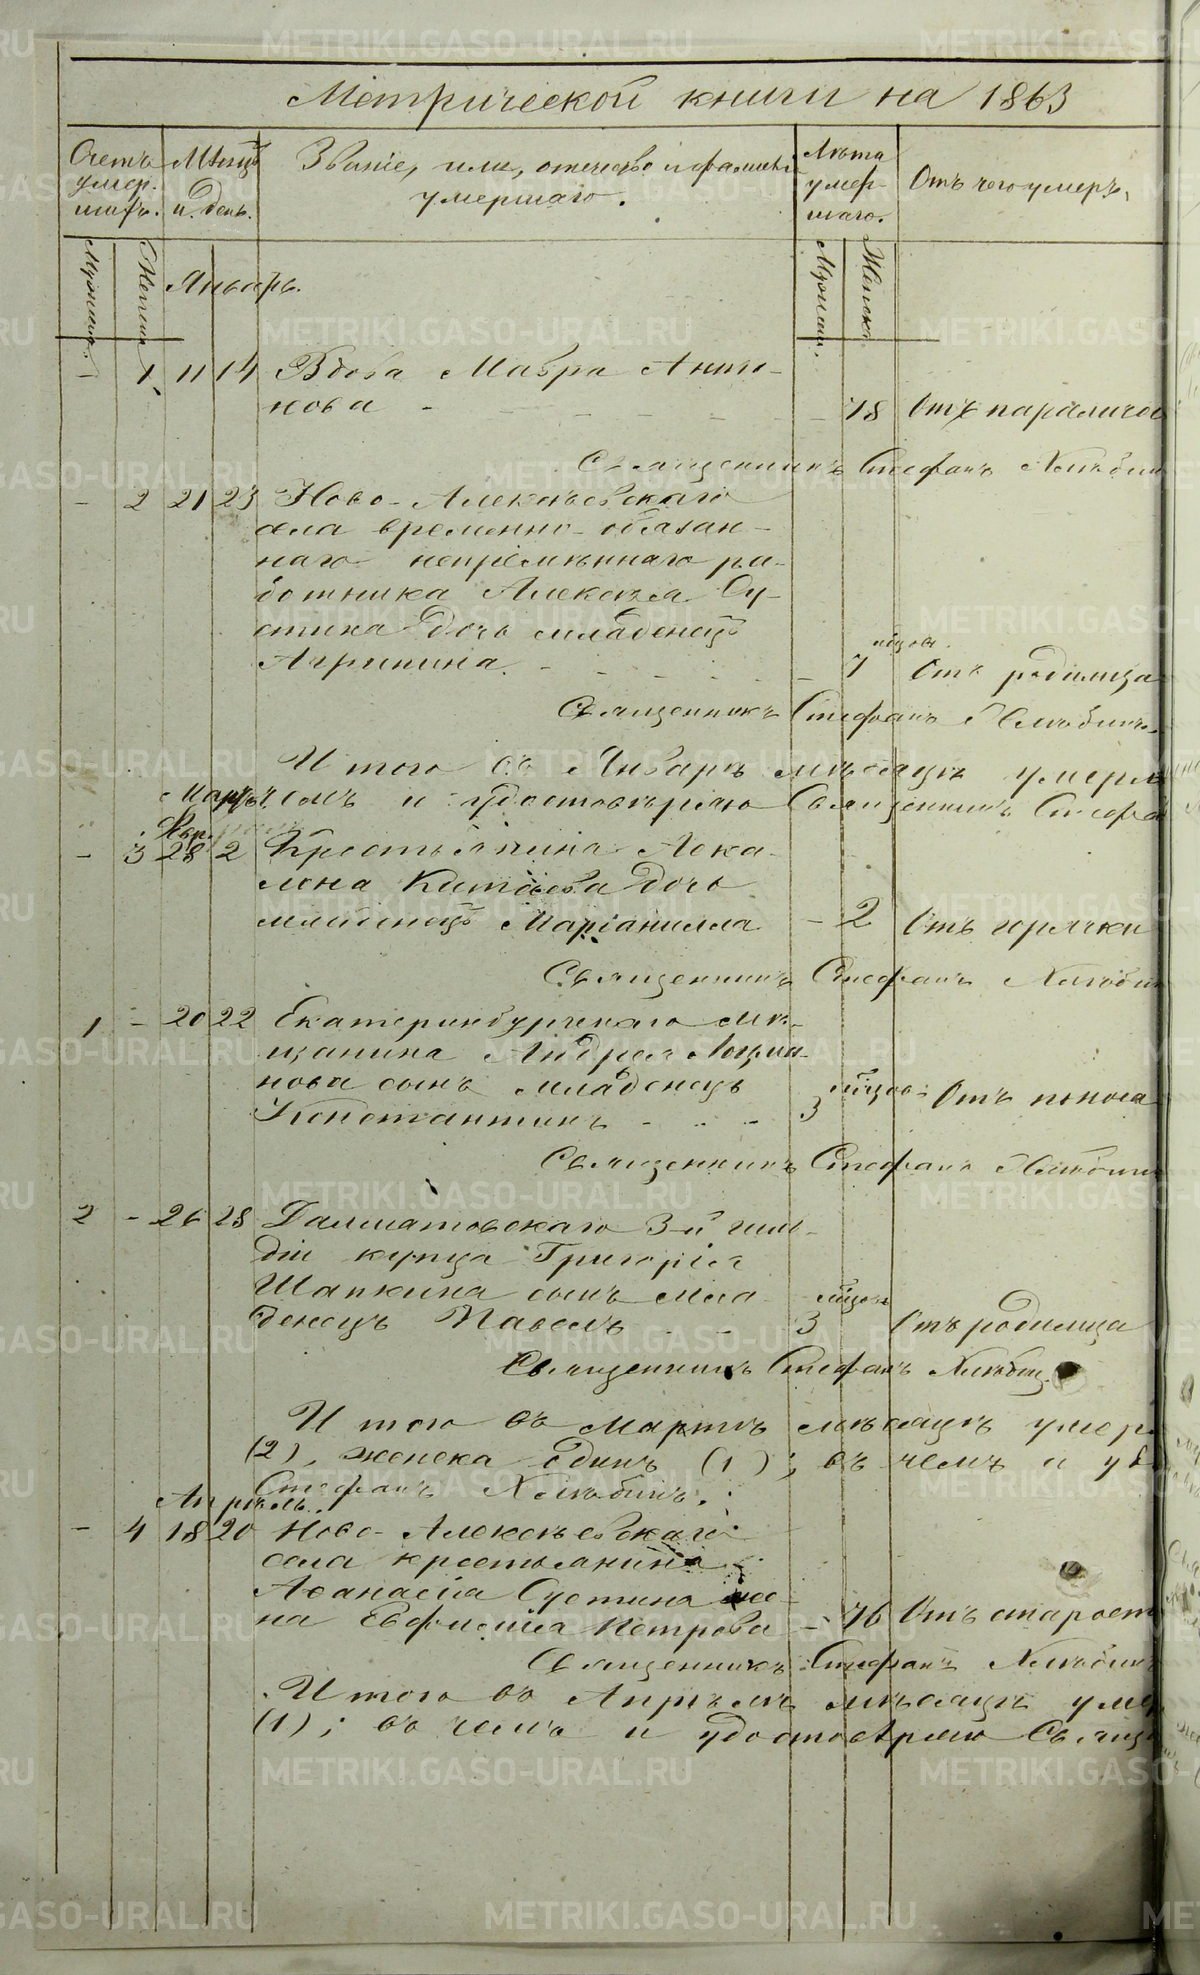 Метрической книги на 1863
Счетъ умер-шихъ.
Мѣсяцъ и день.
Званіе, имя, отчество и фамилія умершаго.
Лѣта умер-шаго.
Отъ чего умеръ,
Январь.
- 1 11 14 Вдова Мавра Анти-
нова - - 78 Отъ паралича
Священникъ Стефанъ Хлѣбин
- 2 21 23 Ново-Алексѣевскаго
села временно-обязан-
наго непремѣннаго ра-
ботника Алексѣя Су-
стина дочь младенецъ
Агрипина. - 7 мѣсяцовъ Отъ родимца
Священникъ Стефанъ Хлѣбинъ
Итого въ Январѣ мѣсяцѣ умерл
Мартъ. чемъ и удостовѣряю Священникъ Стефа
- 3 28 2 Крестьянина
Китаева дочь
младенецъ Маріанилла - 2 Отъ горячки
Священникъ Стефанъ Хлѣбин
1 - 20 22 Екатеринбургскаго мѣ-
щанина Андрея
нова сынъ младенецъ
Константинъ - - - 3 мѣсяцовъ Отъ поноса
Священникъ Стефанъ Хлѣбин
2 - 26 28 Далматовскаго 3-й гиль-
діи купца Григорія
Шапкина сынъ мла-
денецъ Павелъ - - 3 мѣсяцовъ Отъ родимца
Священникъ Стефанъ Хлѣбин.
Итого въ Мартѣ мѣсяцѣ умер
(2), женска одинъ (1); въ чемъ и уд
Стефанъ Хлѣбинъ.
Апрѣль.
- 4 18 20 Ново-Алексѣевскаго
села крестьянина
Афанасія Сустина же-
на Евфимія Петрова - 76 Отъ старост
Священникъ Стефанъ Хлѣбинъ
Итого въ Апрѣлѣ мѣсяцѣ умер
(1); въ чемъ и удостовѣряю Свяще